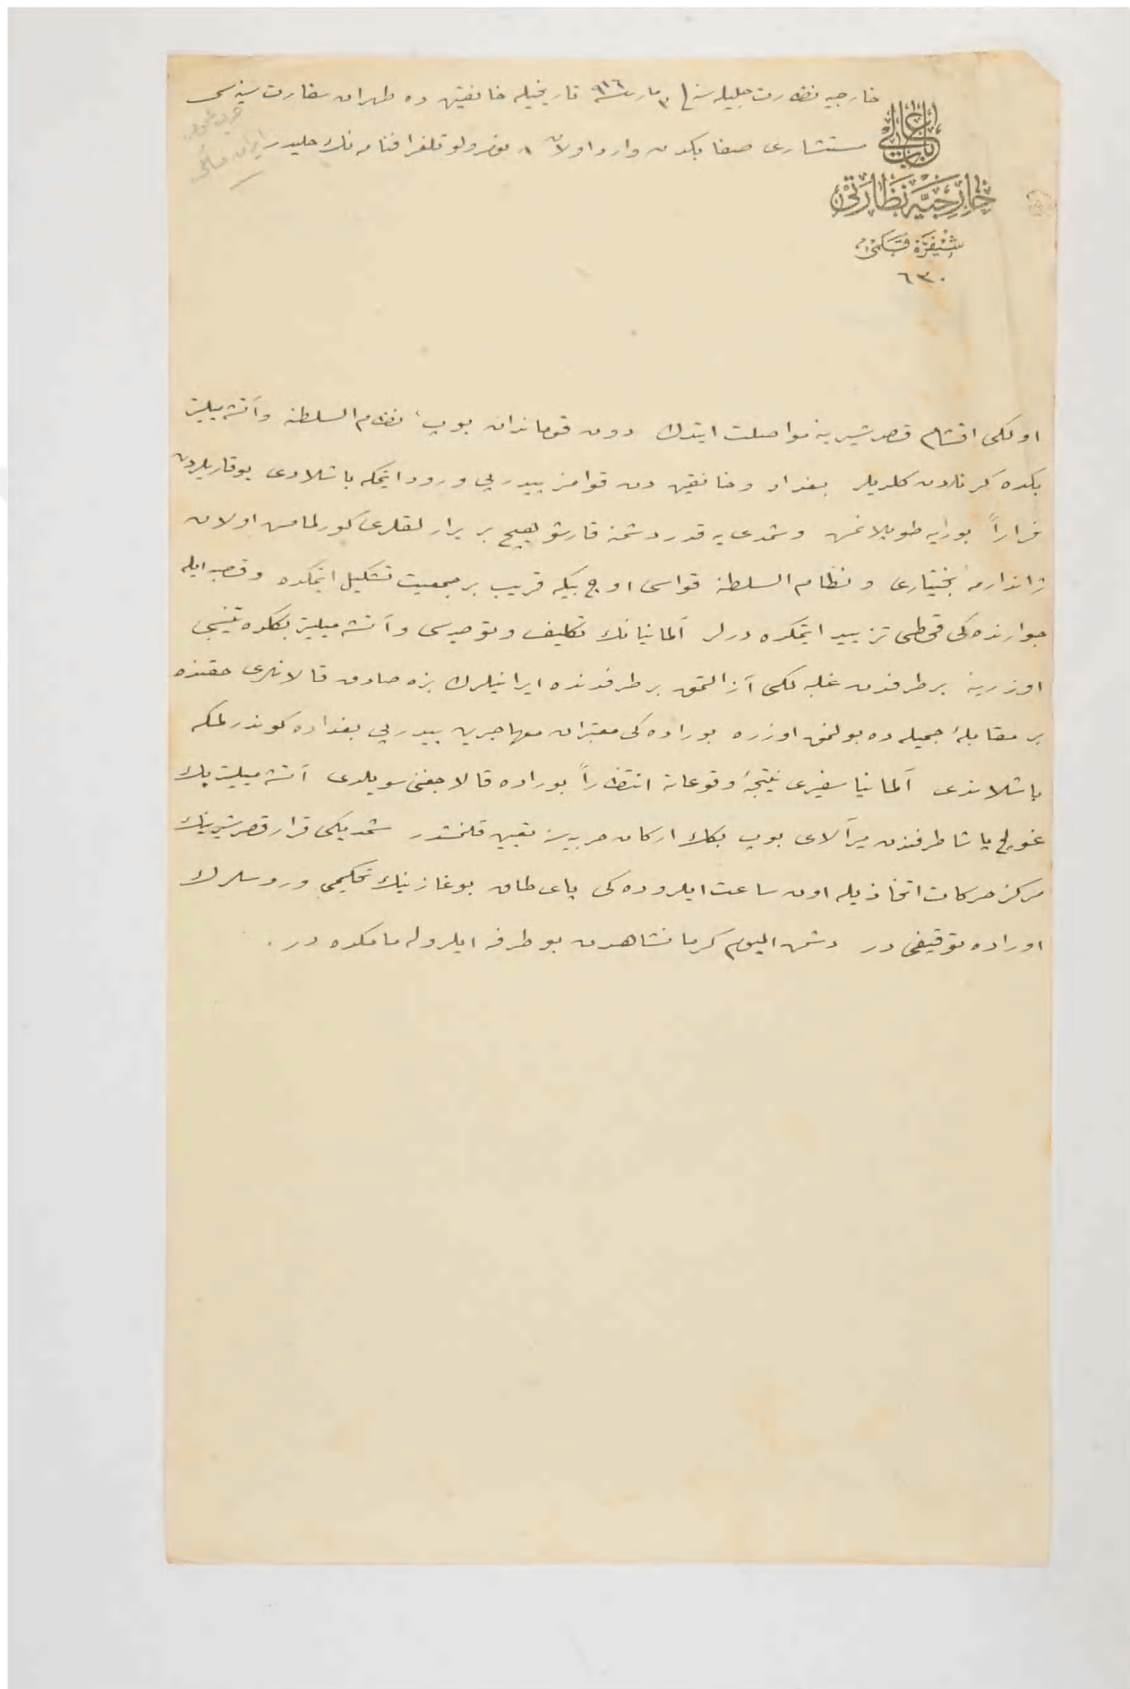 خارجیه نظارت جلیله‌سنه ٣ مارت سنه ٩١٦ تاریخیله خانقین ده طهران سفارت سنیه‌سی
مستشاری صفا بکدن وارد اولان ٨ نومرولو تلغرافنامه نك حلیدر
باب عالی
خارجیه نظارتی
شیفره قلمی
٦٣٠
اولکی اقشام قصر شیرینه مواصلت ایتدك دون قوماندان بوپ، نظام السلطنه و آتشه میلیتر
بکده کرنددن کلدیلر بغداد و خانقین دن قوامز پیدرپی ورود ایتمکه باشلادی یوقاریلردن
فراراً بورایه طوپلانمش و شمدی یه قدر دشمنه قارشو هیچ بر یرارلقلری کورلمامش اولان
ژاندارمه بختیاری و نظام السلطنه قواسی اوچ بیکه قریب بر جمعیت تشکیل ایتمکده و قصبه ایله
جوارنده کی قحطی تزیید ایتمکده درلر آلمانیانك تکلیف و توصیه‌سی و آتشه میلیتر بکلده تنسیبی
اوزرینه بر طرفدن غلبه لکی آزالتمق بر طرفدنده ایرانیلرك بزه صادق قالانلری حقنده
بر مقابلهٔ جمیله ده بولنمق اوزره بوراده کی معتبران مهاجرین پیدرپی بغداده کوندرلمکه
باشلاندی آلمانیا سفیری نتیجهٔ وقوعاته انتظاراً بوراده قالاجغنی سویلدی آتشه میلیتر بك
غولچ پاشا طرفندن میرآلای بوپ بکك ارکان حربنه تعیین قلنمشدر شمدیکی قرار قصر شیرینك
مرکز حرکات اتخاذیله اون ساعت ایلروده کی پای طاق بوغازینك تحکیمی و روسلرك
اوراده توقیفی در دشمن الیوم کرمانشاهدن بو طرفه ایلرولمامکده در .